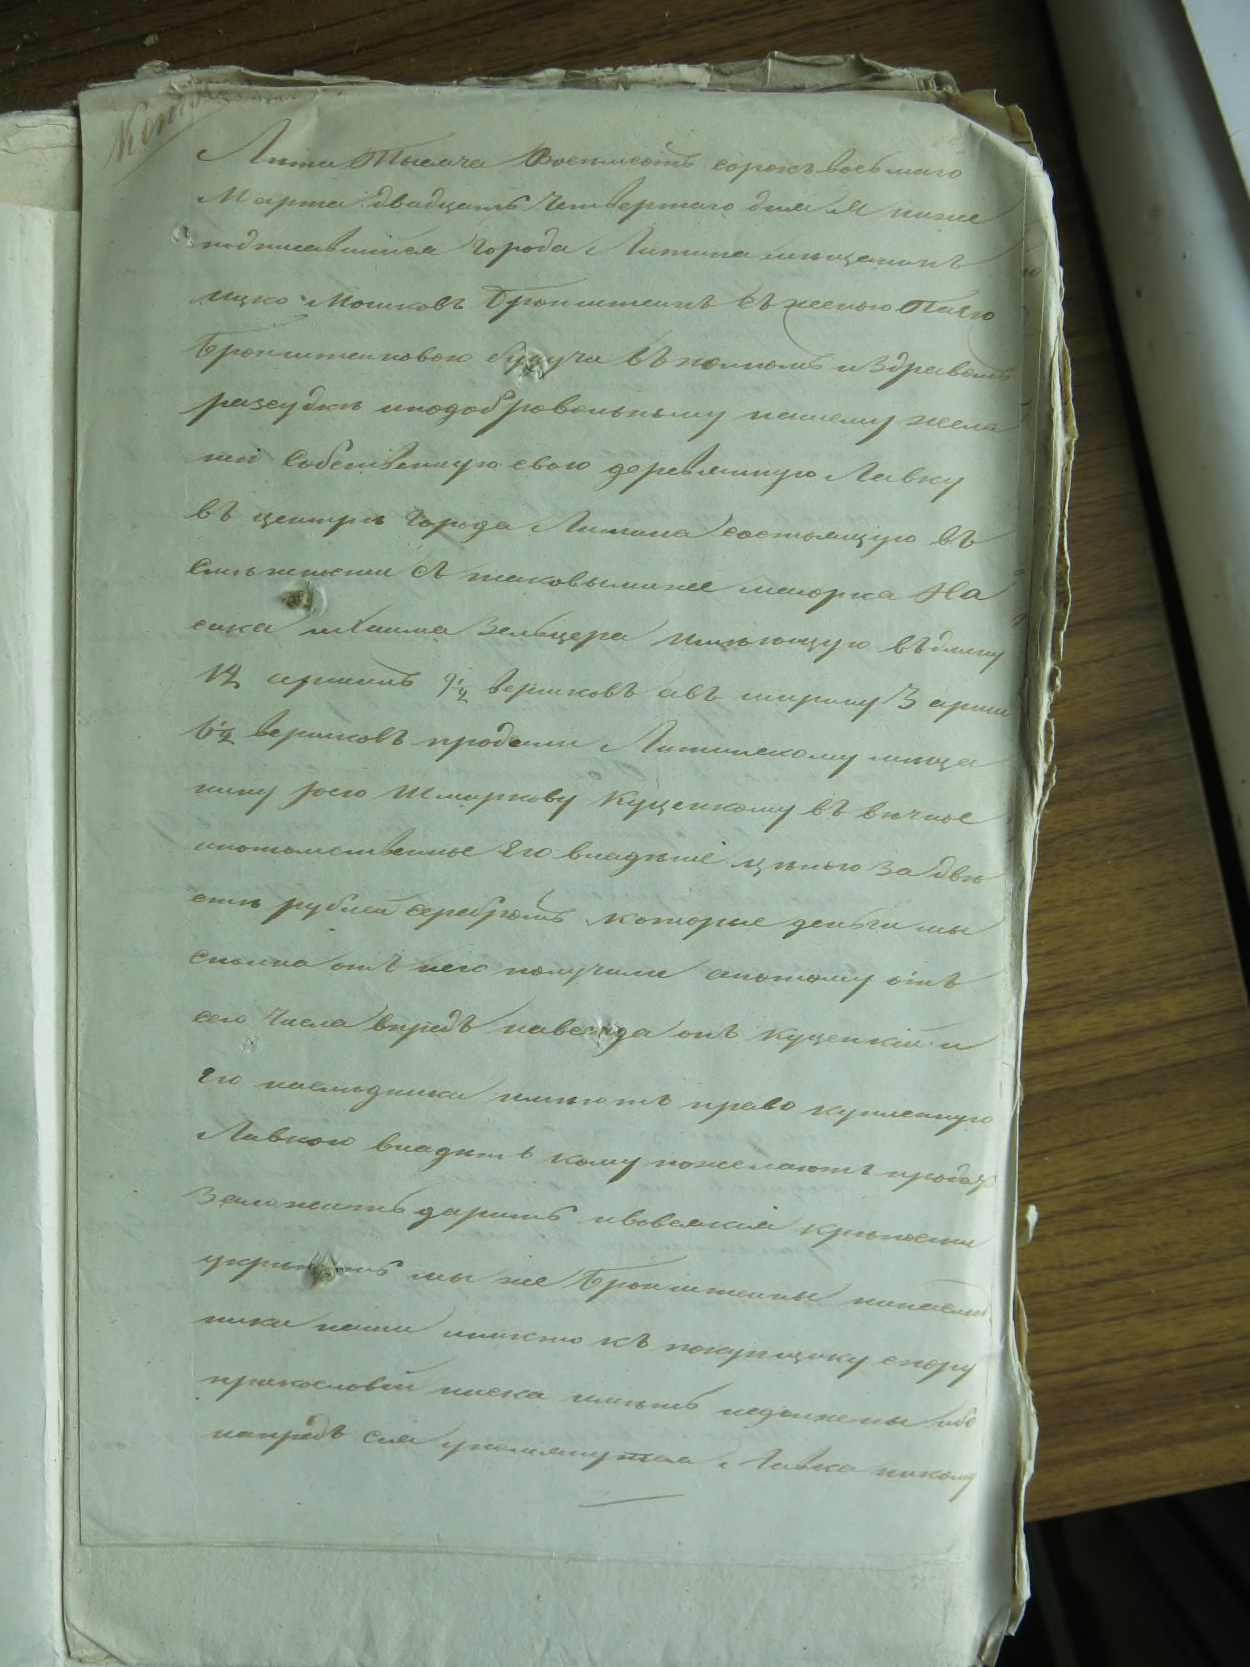 Лета Тысяча Восемсотъ сорокъ восьмаго
Марта двадцать Четвертаго дня Я ниже
подписавшійся Города Литина мещанинъ
ицко Мошковъ Бронштеинъ съ женою
Бронштеиновою будучи въ полномъ и Здравомъ
разсудке иподобровольному нашему жела
нію Собственную свою деревянную Лавку
въ центре Города Литина состоящую въ
смежности съ таковымиже
иХаима Зельцера имеющую въдлину
14 аршинъ 9½ вершковъ авъ ширину 3 арши
6½ вершковъ продали Литинскому меща
нину Шмаркову Куценкому въ вечное
ипотомственное Его владеніе ценою За две
сте рублей серебромъ которые деньги мы
сполна отъ него получили апотому отъ
сего Числа впредь навсегда онъ Куценкій и
Его наследники имеютъ право купленную
Лавкою владеть кому пожелаютъ продать
Заложить дарить ивовсякія крепости
укрепить мы же Бронштеины инаслед
ники наши иникто къ покупщику спору
прикословій иска иметь недолжены ибо
напредъ сія упомянутая Лавка никому